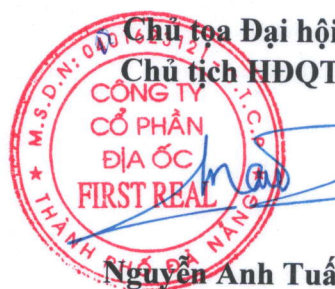 Chủ tọa Đại hội
Chủ tịch HĐQT
M.S.D.N:
C.T.C.P
CÔNG TY
CỔ PHẦN
ĐỊA ỐC
FIRST REAL
THÀNH PHỐ ĐÀ NẴNG
Nguyễn Anh Tuấ